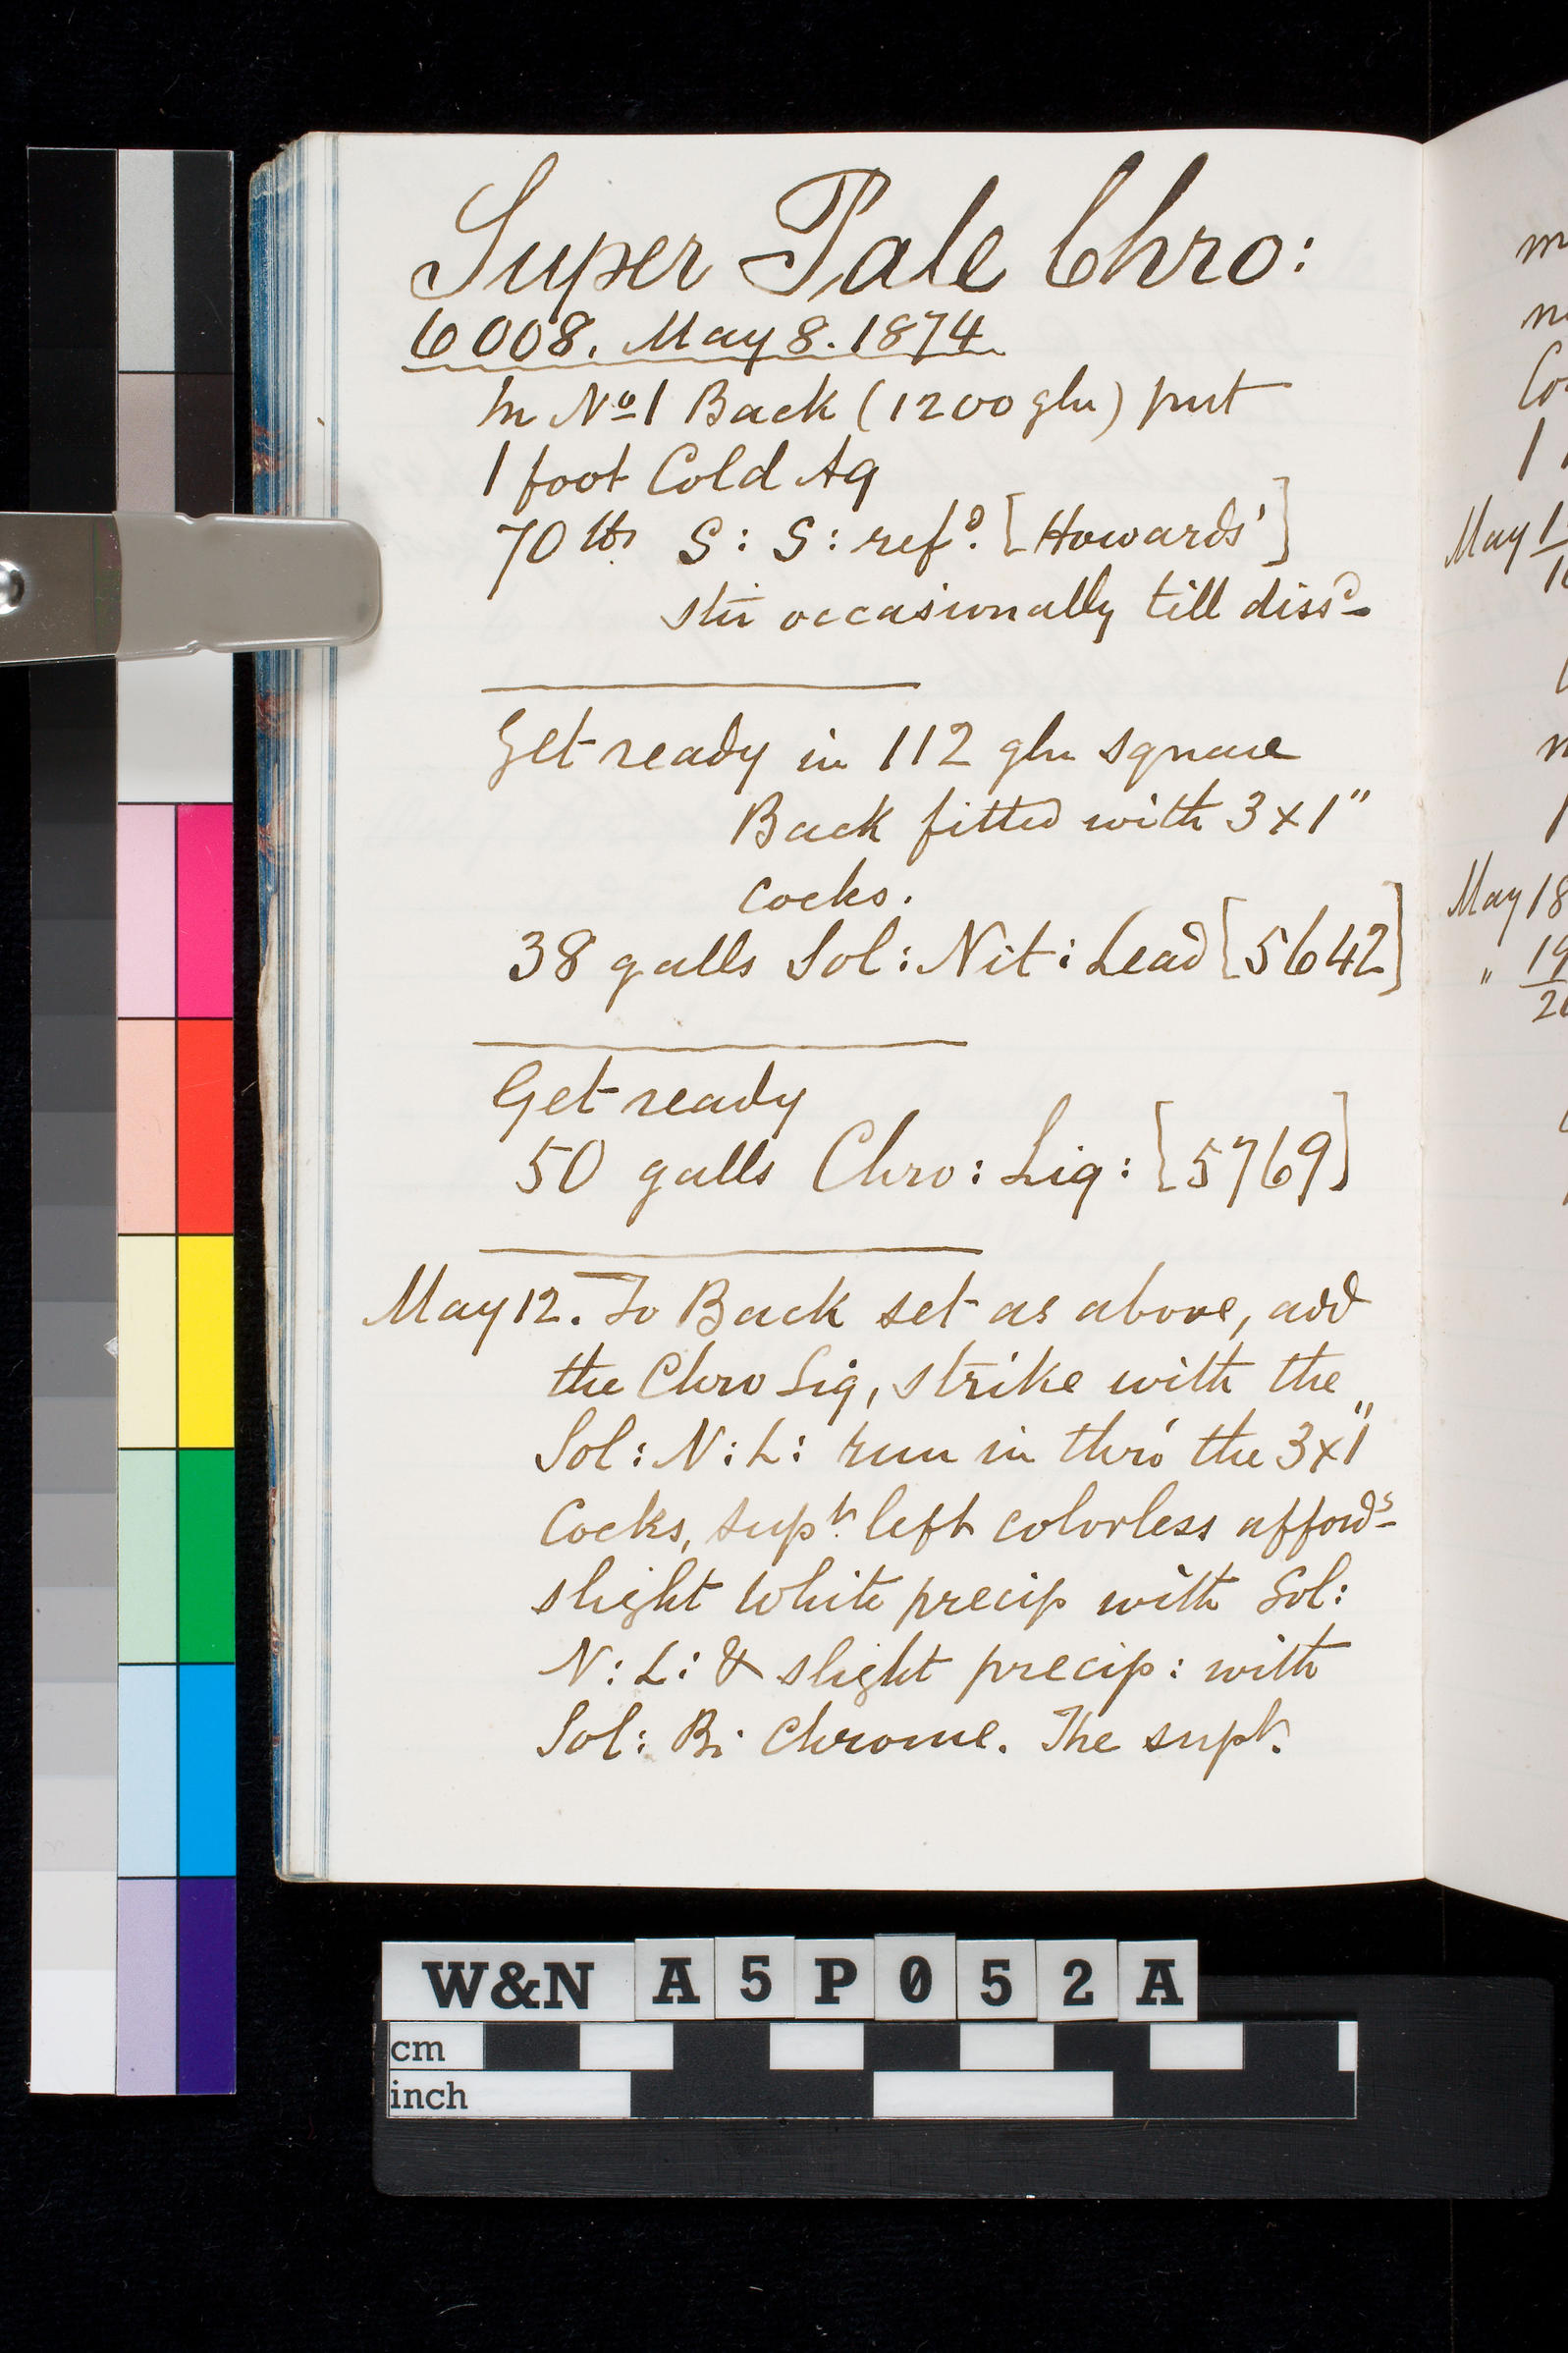 Super Pale Chro:
6008. May 8. 1874
In Nº 1 Back (1200 gln) put
1 foot Cold Aq
70 lbs S: S: refᵈ. [Howards']
stir occasionally till dissᵈ
Get ready in 112 gln square
Back fitted with 3 x 1"
Cocks.
38 galls Sol: Nit: Lead [5642]
Get ready
50 galls Chro: Liq: [5769]
May 12. To Back set as above, add
the Chro Liq, strike with the
Sol: N: L: run in thro' the 3x1"
Cocks, supᵗ. left colorless affordˢ
slight white precip with Sol:
N: L: & slight precip: with
Sol: Bi Chrome. The supt.
m
Co
1
May 1
May 18
" 19
W&N A 5 P 0 5 2 A
cm
inch